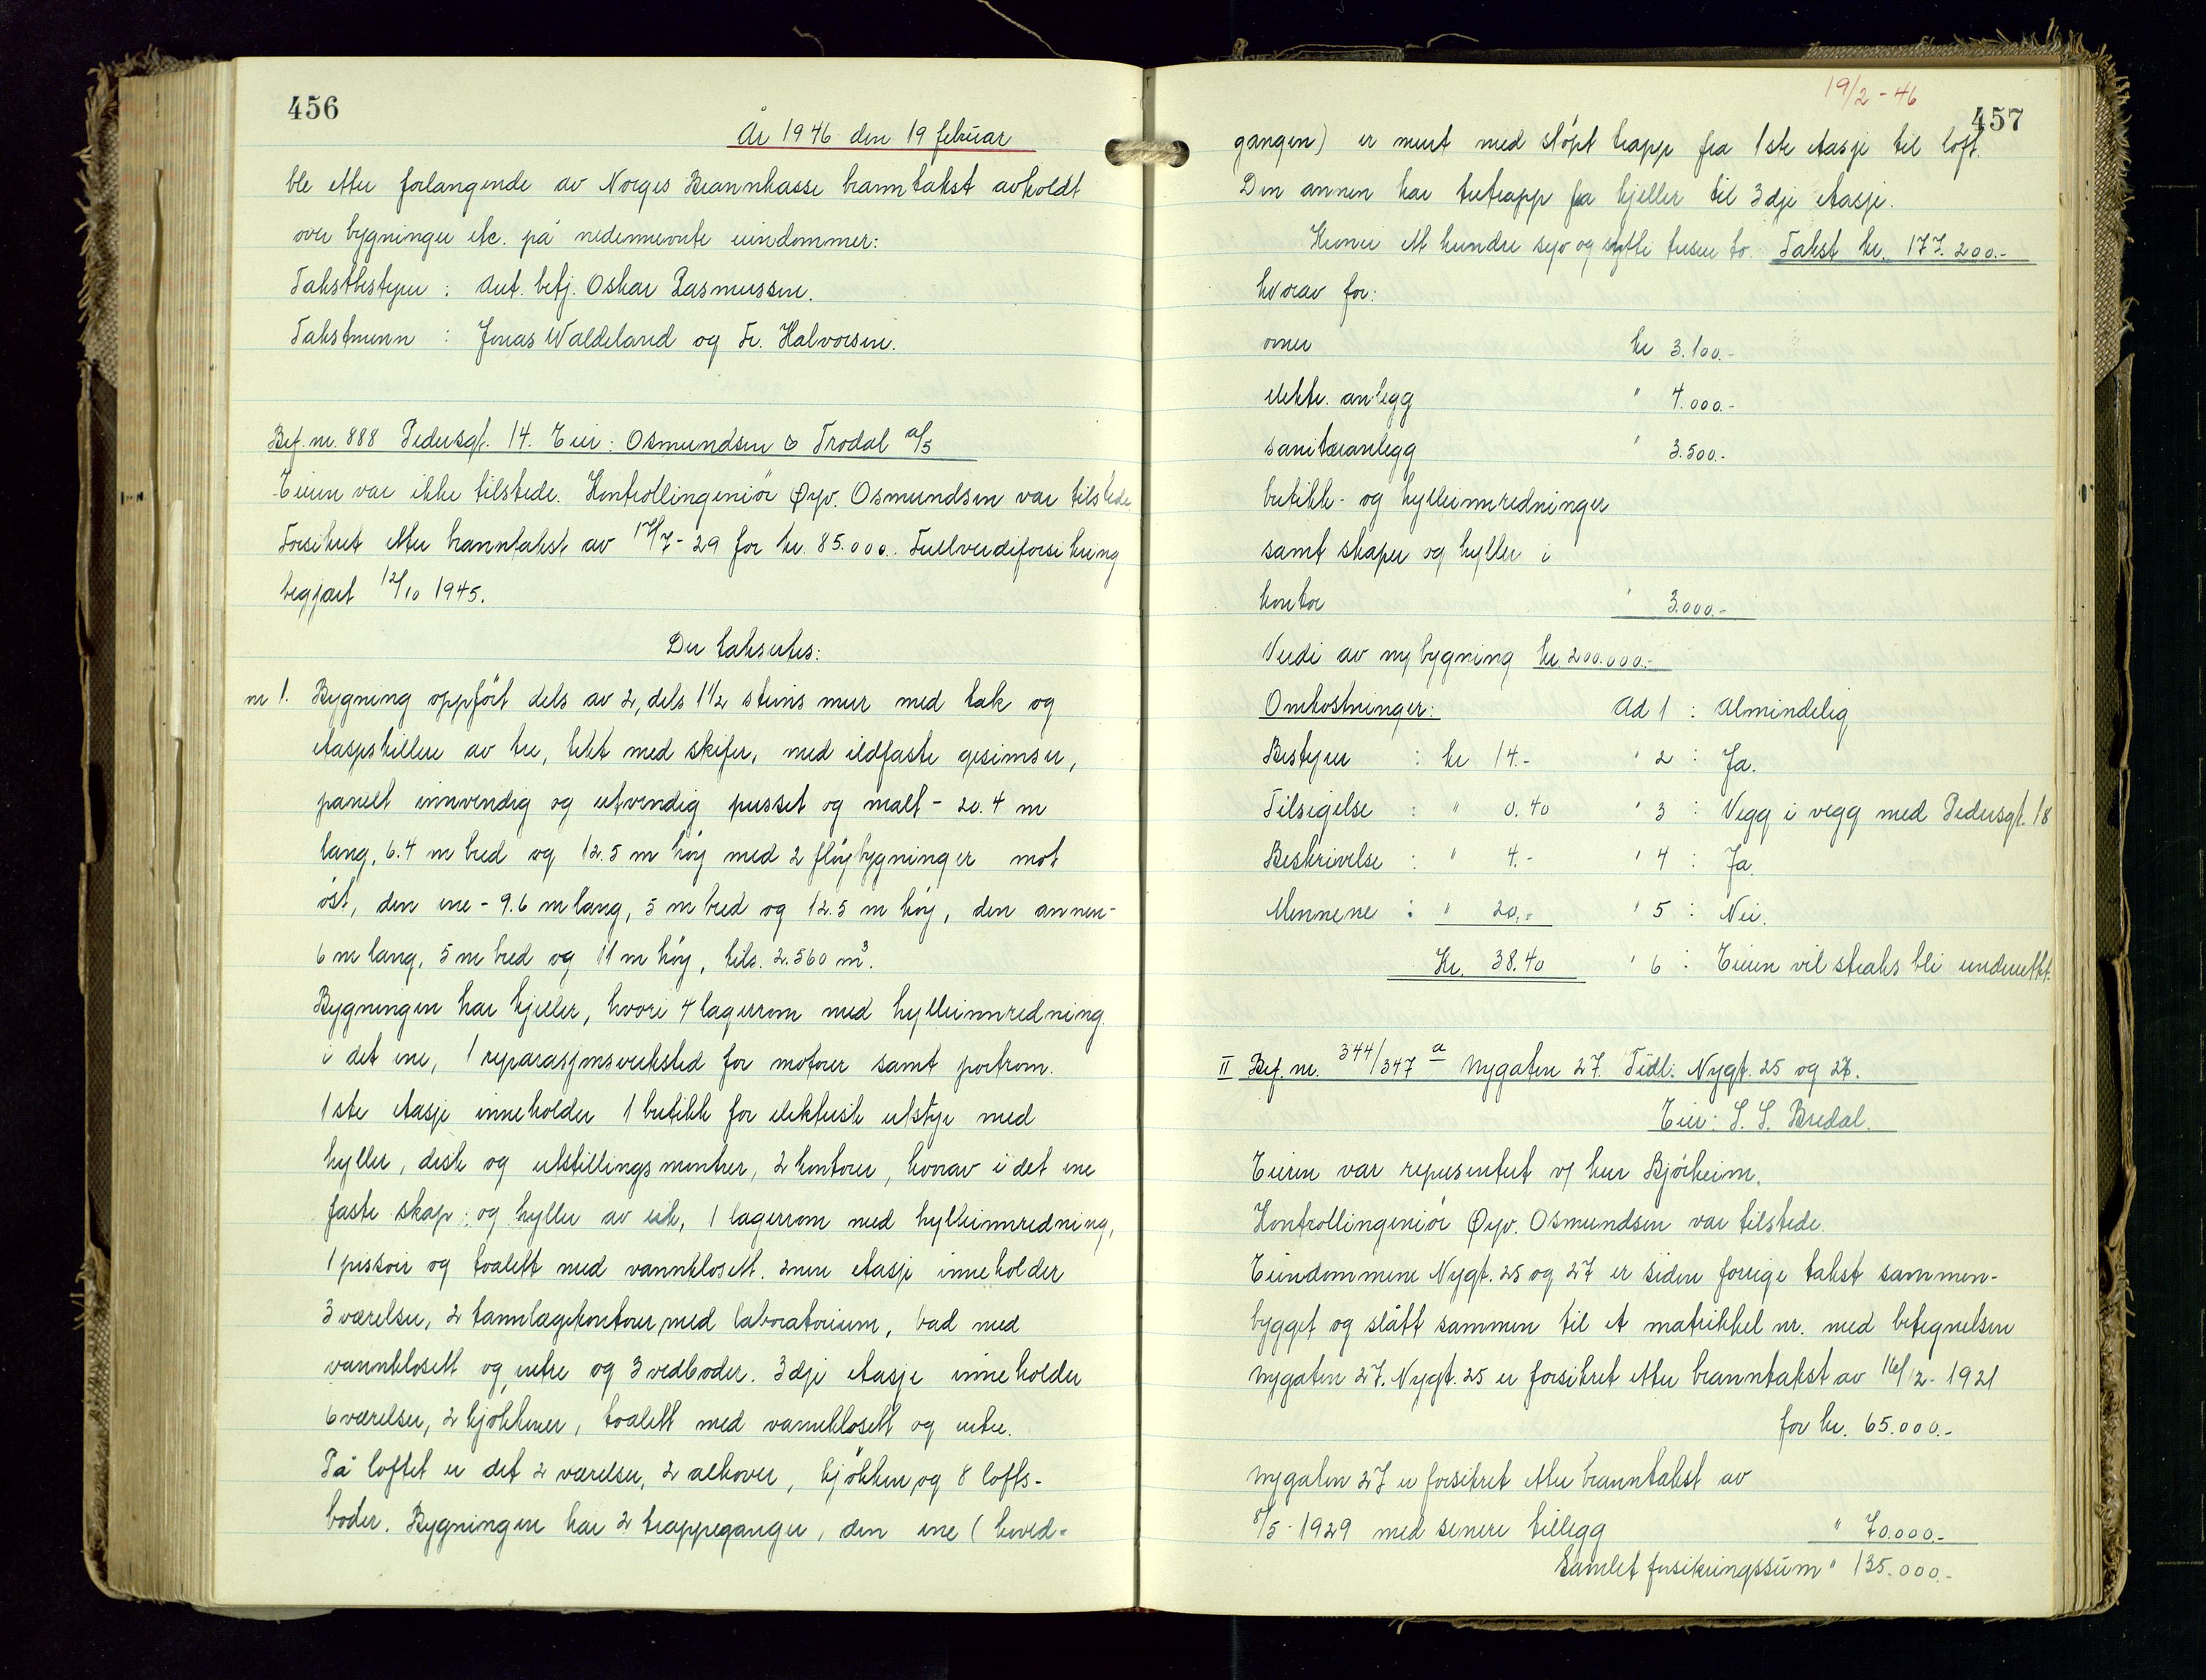 456
År 1946 den 19 februar
ble etter forlangende av Norges Brannkasse branntakst avholdt
over bygninger etc. på nedennevnte eiendommer:
Takstbestyrer : Aut. betj. Oskar Rasmussen.
Takstmenn : Jonas Waldeland og Fr. Halvorsen.
Bef. nr. 888 Pedersgt. 14. Eier: Osmundsen & Trodal a/s
Eieren var ikke tilstede. Kontrollingeniör Øyv. Osmundsen var tilstede
Forsikret etter branntakst av 17/7-29 for kr. 85.000. Fullverdiforsikring
begjært 12/10 1945.
Der takseres:
nr 1. Bygning oppfört dels av 2, dels 1 1/2 steins mur med tak og
etasjeskillere av tre, tekt med skifer, med ildfaste gesimser,
panelt innvendig og utvendig pusset og malt - 20.4 m
lang, 6.4 m bred og 12.5 m höy med 2 flöybygninger mot
öst, den ene - 9.6 m lang, 5 m bred og 12.5 m höy, den annen-
6 m lang, 5 m bred og 11 m höy, tils. 2.560 m³.
Bygningen har kjeller, hvori 4 lagerrom med hylleinnredning
i det ene, 1 reparasjonsverksted for motorer samt portrom.
1ste etasje inneholder 1 butikk for elektrisk utstyr med
hyller, disk og utstillingsmontrer, 2 kontorer, hvorav i det ene
faste skap og hyller av eik, 1 lagerrom med hylleinnredning,
1 pissoir og toalett med vannklosett. 2nen etasje inneholder
3 værelser, 2 tannlægekontorer med laboratorium, bad med
vannklosett og entre og 3 vedboder. 3dje etasje inneholder
6 værelser, 2 kjökkener, toalett med vannklosett og entre.
På loftet er det 2 værelser, 2 alkover, kjökken og 8 lofts-
boder. Bygningen har 2 trappeganger, den ene (hoved-
19/2-46
457
gangen) er murt med stöpt trapp fra 1ste etasje til loft.
Den annen har tretrapp fra kjeller til 3dje etasje.
Kroner ett hundre syv og sytti tusen to. Takst kr. 177.200.-
hvorav for:
ovner kr 3.100.-
elektr. anlegg " 4.000.-
sanitæranlegg " 3.500.-
butikk- og hylleinnredninger
samt skaper og hyller i
kontor " 3.000.-
Verdi av nybygning kr 200.000.-
Omkostninger: Ad 1 : Almindelig
Bestyrer : kr 14.- " 2 : Ja.
Tilsigelse : " 0.40 " 3 : Vegg i vegg med Pedersgt. 18
Beskrivelse : " 4.- " 4 : Ja.
Mennene : " 20.- " 5 : Nei.
Kr. 38.40 " 6 : Eieren vil straks bli underrettet.
II Bef. nr. 344/347 a Nygaten 27. Tidl. Nygt. 25 og 27.
Eier: S. S. Bredal.
Eieren var representert v/ herr Bjórheim.
Kontrollingeniör Øyv. Osmundsen var tilstede.
Eiendommene Nygt. 25 og 27 er siden forrige takst sammen-
bygget og slått sammen til et matrikkel nr. med betegnelsen
Nygaten 27. Nygt. 25 er forsikret etter branntakst av 16/12-1921
for kr. 65.000.-
Nygaten 27 er forsikret etter branntakst av
8/5-1929 med senere tillegg " 70.000.-
Samlet forsikringssum " 135.000.-